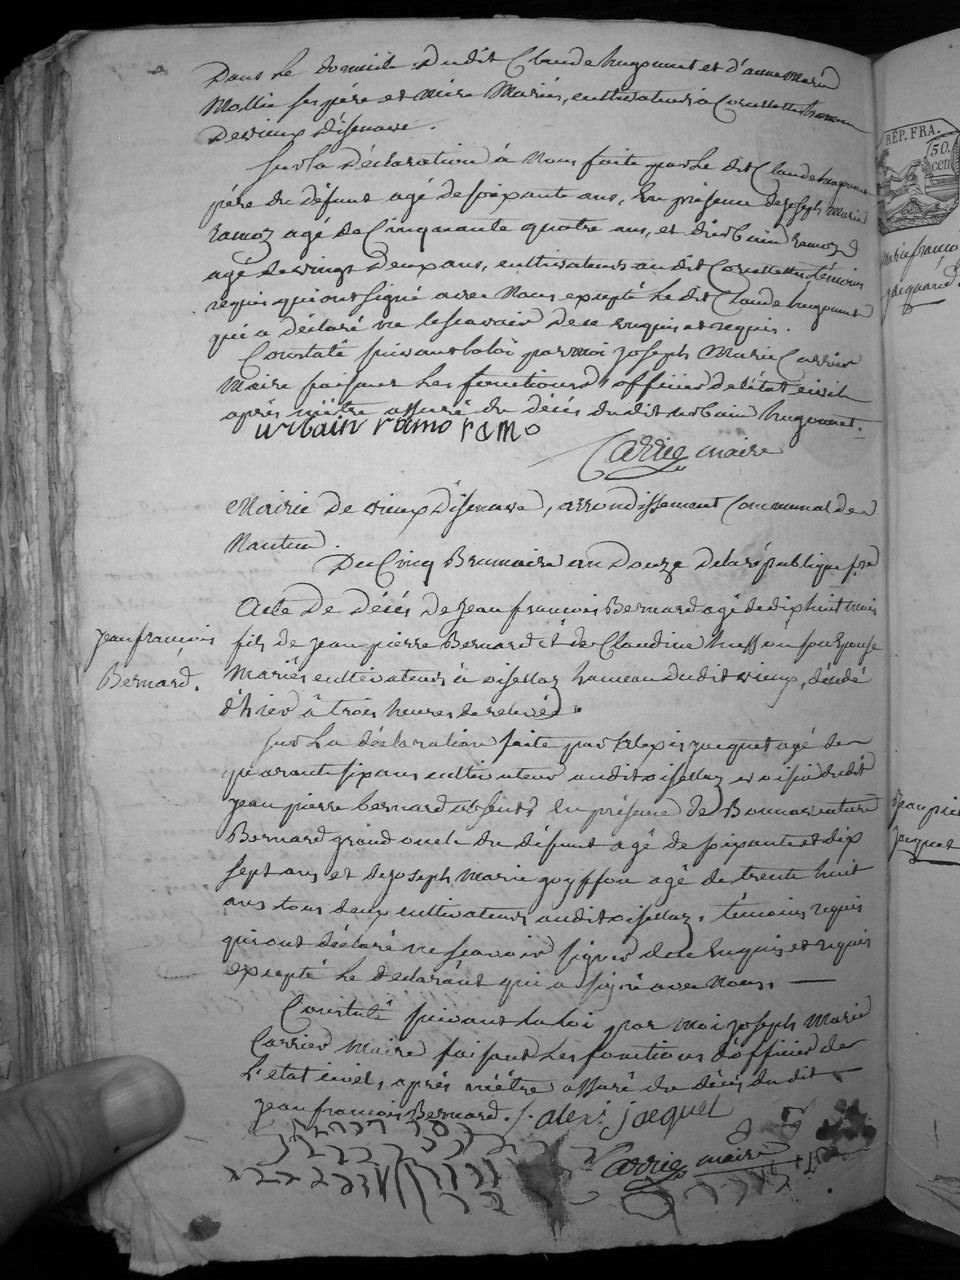 Dans le domicile dudit Claude hugonnet et d'anne marie
Mollie ses père et mère Mariés, cultivateurs à Corcellette hameau
de vieux d'isenave.
Sur la Déclaration à Nous faite par le dit Claude hugonnet
père du défunt agé de soixante ans, En présence de joseph Marie
ramoz agé de Cinquante quatre ans, et d'urbain ramoz
agé de vingt deux ans, cultivateurs audit Corcellette, témoins
requis qui ont signé avec Nous excepté le dit Claude hugonnet
qui a déclaré ne le scavoir de ce enquis et requis.
Constaté suivant la loi par moi joseph Marie Carrier
Maire faisant les fonctions d'officier de l'état civil
après m'être assuré du décès dudit urbain hugonnet.
urbain ramo ramo
Carrier maire
Mairie de vieux d'isenave, arrondissement Communal de
Nantua.
Du Cinq Brumaire an Douze de la république fse
Acte de Décès de Jean françois Bernard agé de dix huit mois
jean françois
Bernard.
fils de jean pierre Bernard et de Claudine husson son Epouse
Mariés cultivateurs à oisellaz hameau dudit vieux, décédé
d'hier à trois heures de relevée.
Sur la déclaration faite par Alexis jacquet agé de
quarante six ans cultivateur audit oisellaz et voisin dudit
jean pierre bernard absent, En présence de Bonnaventure
Bernard grand oncle du défunt agé de soixante et dix
sept ans et de joseph Marie goyffon agé de trente huit
ans tous deux cultivateurs audit oisellaz, témoins requis
qui ont déclaré ne scavoir signer de ce Enquis et requis
excepté le déclarant qui a signé avec Nous.
Constaté suivant la loi par moi joseph Marie
Carrier Maire faisant les fonctions d'officier de
l'état civil, après m'être assuré du décès du dit
jean françois Bernard. alexi jacquet
Carrier maire
RÉP. FRA.
50.
cen
Marie franço
jacquand
jean pie
jacquet